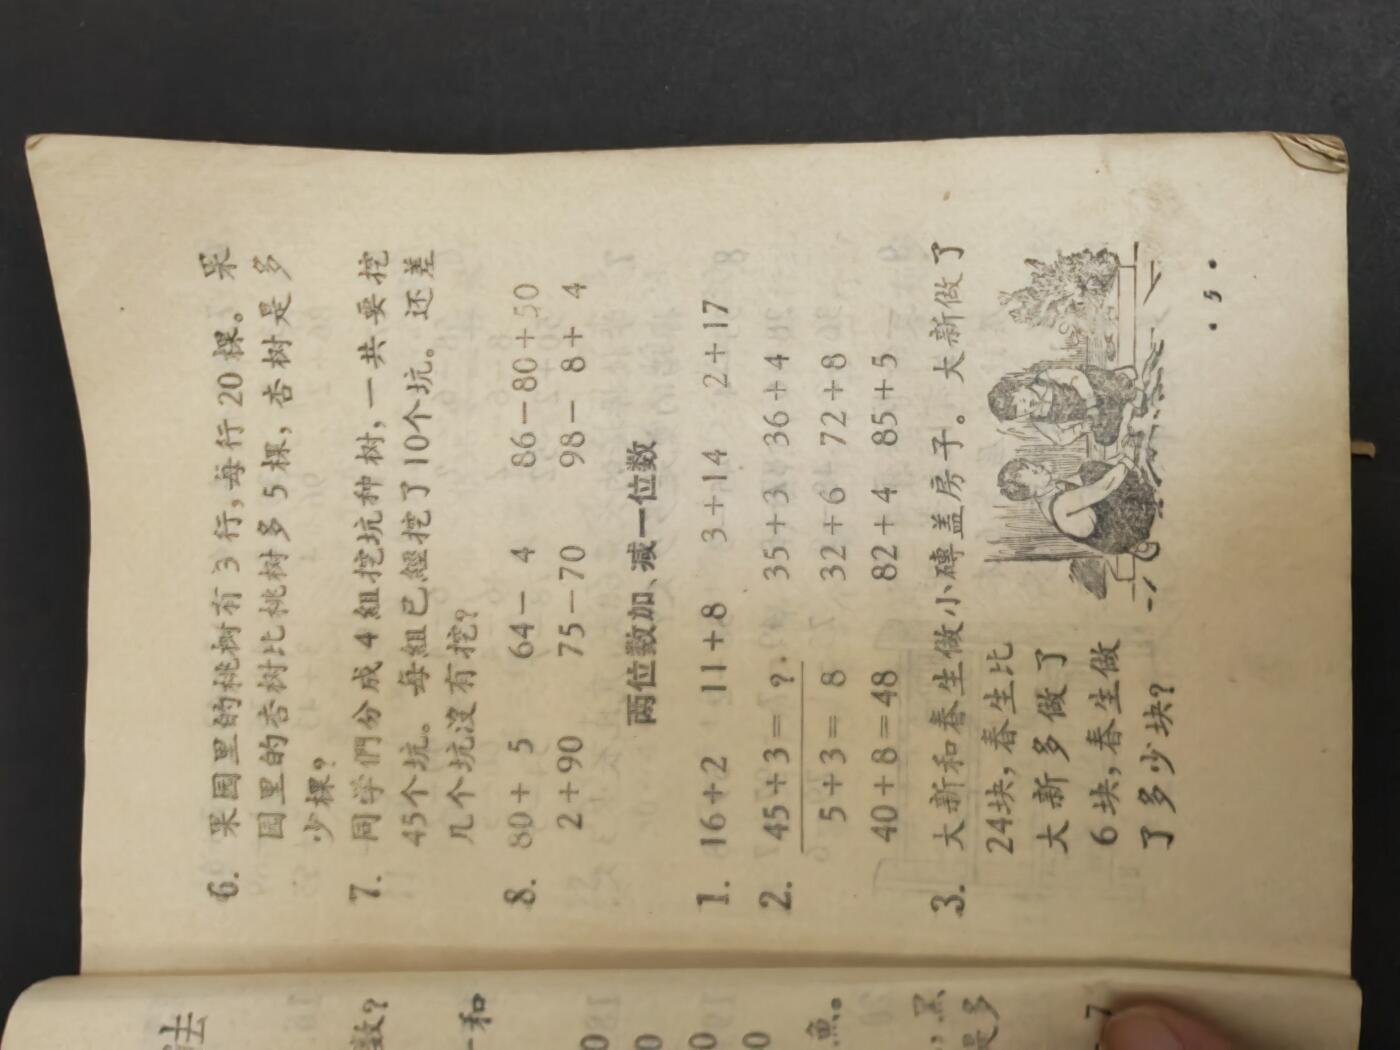 6. 果园里的桃树有3行，每行20棵。果
园里的杏树比桃树多5棵，杏树是多
少棵？
7. 同学們分成4組挖坑种树，一共要挖
45个坑。每組已經挖了10个坑。还差
几个坑沒有挖？
8. 80+ 5 64- 4 86-80+50
2+90 75-70 98- 8+ 4
两位数加、减一位数
1. 16+2 11+8 3+14 2+17
2. 45+3=？ 35+3 36+4
5+3= 8 32+6 72+8
40+8=48 82+4 85+5
3. 大新和春生做小磚盖房子。大新做了
24块，春生比
大新多做了
6块，春生做
了多少块？
· 5 ·
法
数？
和
魚。
，黑
是多
7